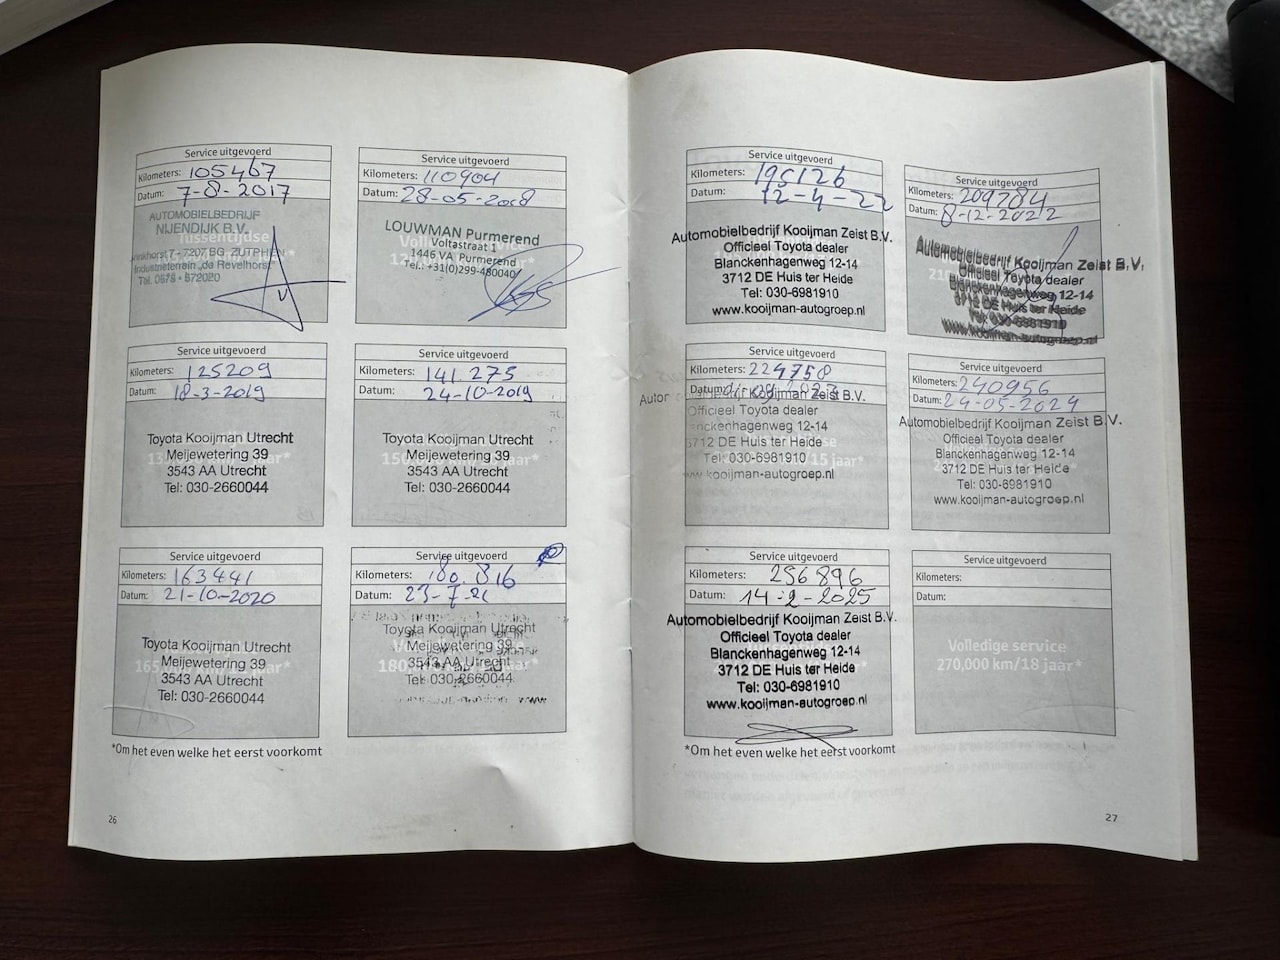 Service uitgevoerd
Kilometers: 105467
Datum: 7-8-2017
AUTOMOBIELBEDRIJF
NIJENDIJK B.V.
7207 BG ZUTPHEN
Industrieterrein „de Revelhorst"
Tel. 0575 - 572020
Service uitgevoerd
Kilometers: 110904
Datum: 28-05-2018
LOUWMAN Purmerend
Voltastraat 1
1446 VA Purmerend
Tel.: +31(0)299-480040
Service uitgevoerd
Kilometers: 125209
Datum: 18-3-2019
Toyota Kooijman Utrecht
Meijewetering 39
3543 AA Utrecht
Tel: 030-2660044
Service uitgevoerd
Kilometers: 141.273
Datum: 24-10-2019
Toyota Kooijman Utrecht
Meijewetering 39
3543 AA Utrecht
Tel: 030-2660044
Service uitgevoerd
Kilometers: 163441
Datum: 21-10-2020
Toyota Kooijman Utrecht
Meijewetering 39
3543 AA Utrecht
Tel: 030-2660044
Service uitgevoerd
Kilometers: 180.816
Datum: 23-7-21
Toyota Kooijman Utrecht
Meijewetering 39
3543 AA Utrecht
Tel: 030-2660044
*Om het even welke het eerst voorkomt
26
Service uitgevoerd
Kilometers: 196126
Datum: 12-4-22
Automobielbedrijf Kooijman Zeist B.V.
Officieel Toyota dealer
Blanckenhagenweg 12-14
3712 DE Huis ter Heide
Tel: 030-6981910
www.kooijman-autogroep.nl
Service uitgevoerd
Kilometers: 209784
Datum: 8-12-2022
Automobielbedrijf Kooijman Zeist B.V.
Officieel Toyota dealer
Blanckenhagenweg 12-14
3712 DE Huis ter Heide
Tel: 030-6981910
www.kooijman-autogroep.nl
Service uitgevoerd
Kilometers: 224758
Datum:
Kooijman Zeist B.V.
Officieel Toyota dealer
Blanckenhagenweg 12-14
3712 DE Huis ter Heide
Tel: 030-6981910
www.kooijman-autogroep.nl
Service uitgevoerd
Kilometers: 240956
Datum: 24-05-2024
Automobielbedrijf Kooijman Zeist B.V.
Officieel Toyota dealer
Blanckenhagenweg 12-14
3712 DE Huis ter Heide
Tel: 030-6981910
www.kooijman-autogroep.nl
Service uitgevoerd
Kilometers: 256896
Datum: 14-2-2025
Automobielbedrijf Kooijman Zeist B.V.
Officieel Toyota dealer
Blanckenhagenweg 12-14
3712 DE Huis ter Heide
Tel: 030-6981910
www.kooijman-autogroep.nl
Service uitgevoerd
Kilometers:
Datum:
Volledige service
270,000 km/18 jaar*
*Om het even welke het eerst voorkomt
27